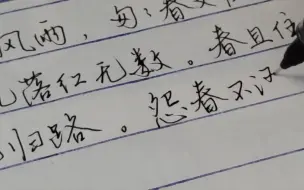 风雨，匆匆春又
落红无数。春且住
归路。怨春不